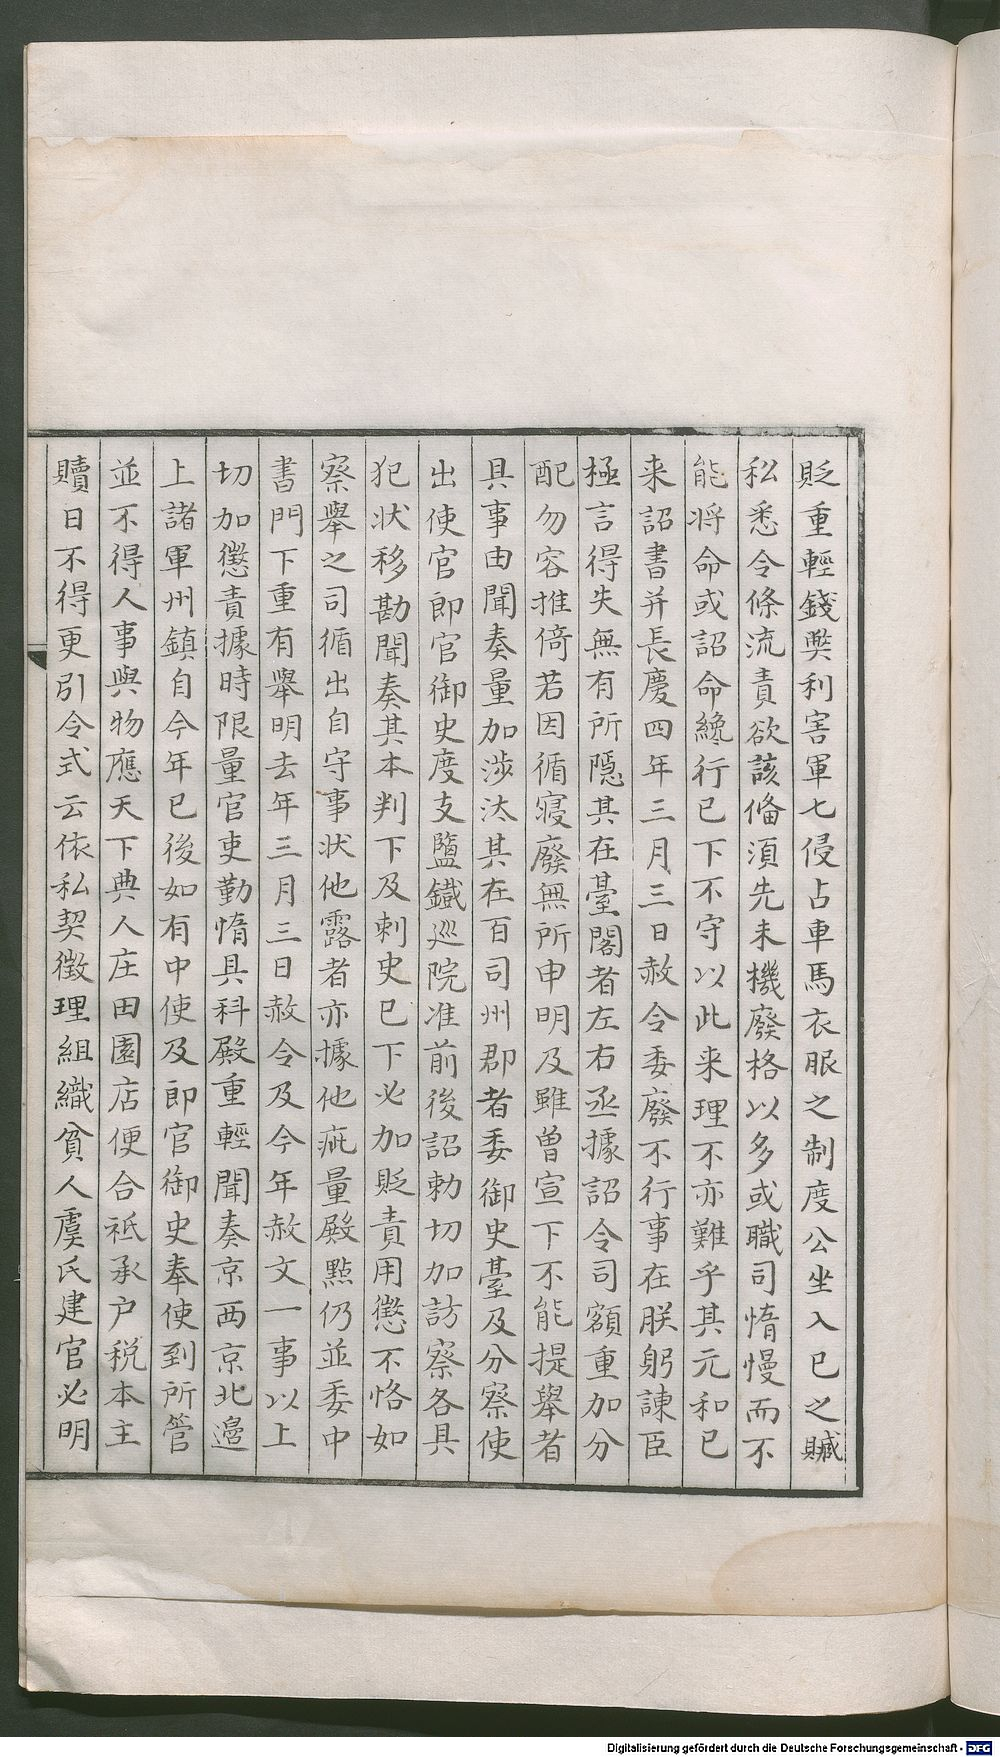 貶重輕錢獘利害軍七侵占車馬衣服之制度公坐入已之贓
私悉令條流責欲該俻湏先未機廢格以多或職司惰慢而不
能将命或詔命纔行已下不守以此来理不亦難乎其元和已
来詔書并長慶四年三月三日赦令委廢不行事在朕躬諌臣
極言得失無有所隱其在臺閣者左右丞據詔令司額重加分
配勿容推倚若因循寝廢無所申明及雖曾宣下不能提舉者
具事由聞奏量加涉汰其在百司州郡者委御史臺及分察使
出使官郎官御史度支鹽鐵巡院准前後詔勅切加訪察各具
犯状移勘聞奏其本判下及刺史已下必加貶責用懲不恪如
察舉之司循出自守事状他露者亦據他疵量殿黜仍並委中
書門下重有舉明去年三月三日赦令及今年赦文一事以上
切加懲責據時限量官吏勤惰具科殿重輕聞奏京西京北邉
上諸軍州鎮自今年已後如有中使及郎官御史奉使到所管
並不得人事與物應天下典人庄田園店便合祗承户税本主
贖日不得更引令式云依私契徴理組織貧人虞氏建官必明
Digitalisierung gefördert durch die Deutsche Forschungsgemeinschaft - DFG